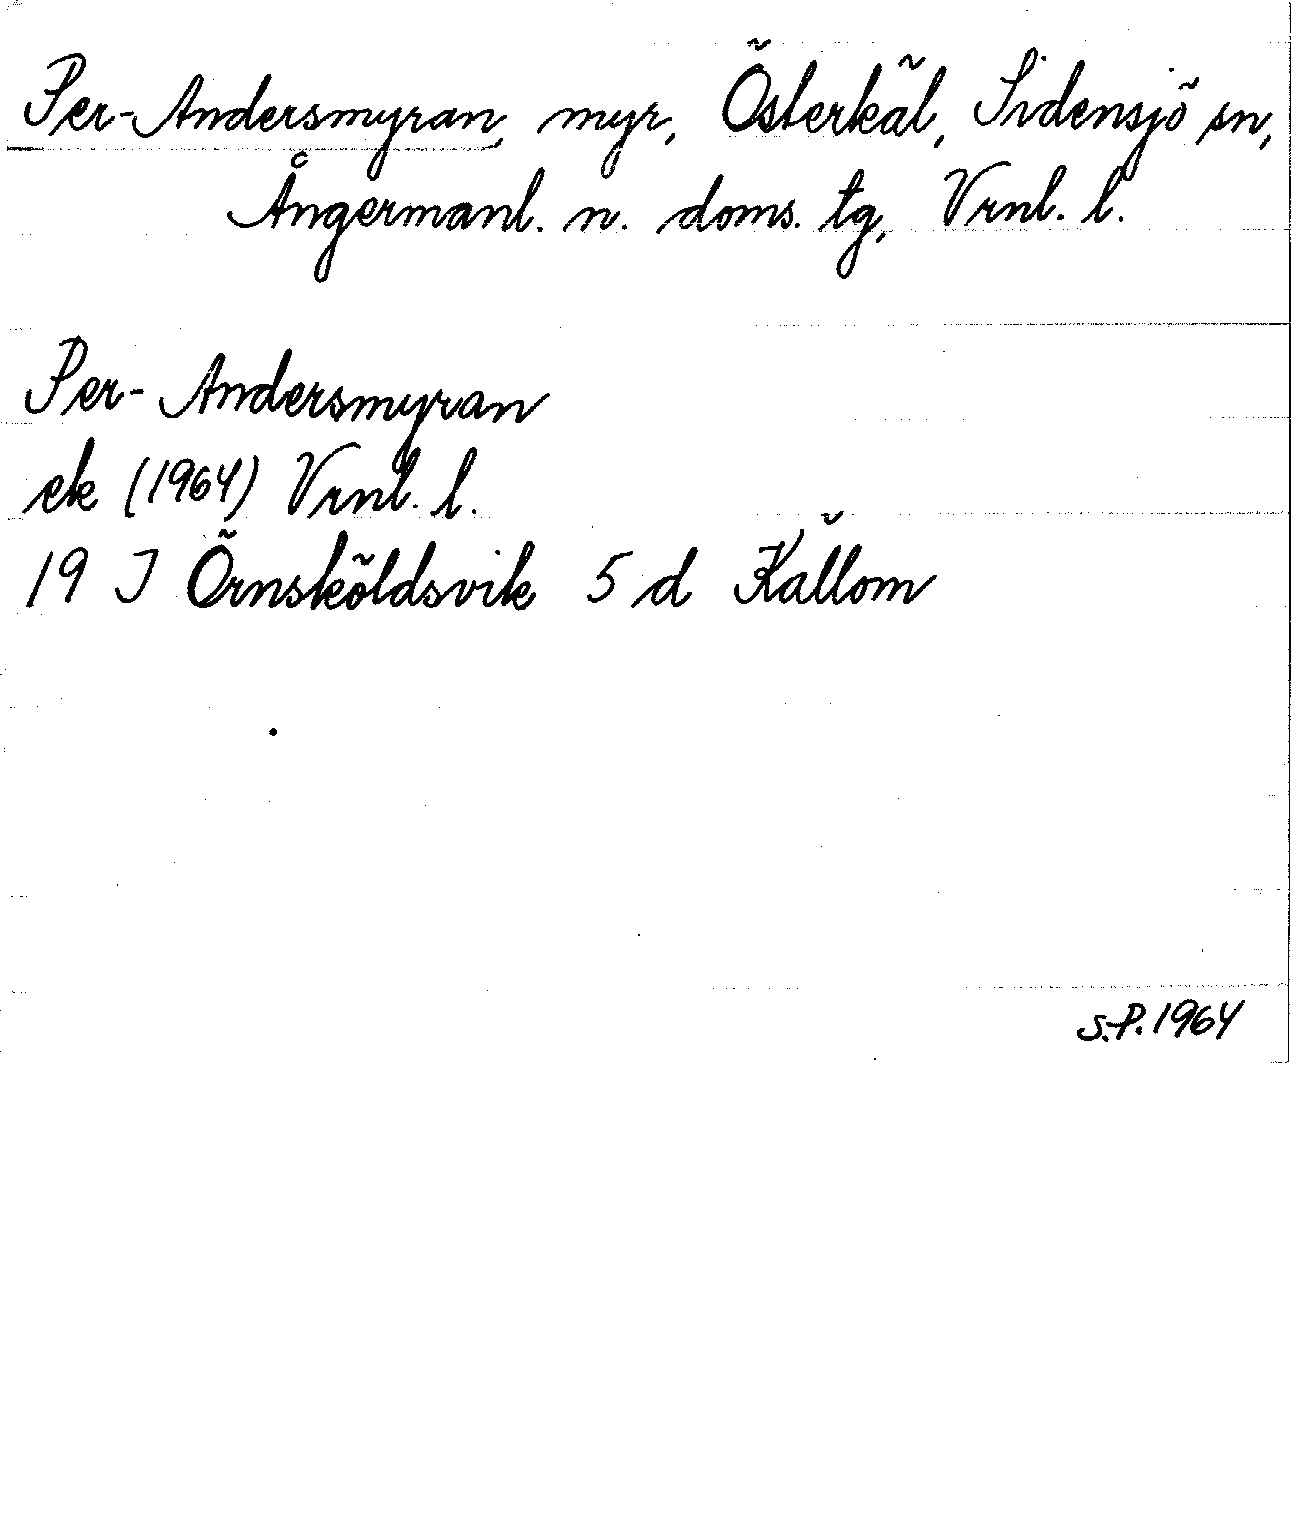 Per-Andersmyran, myr, Österkäl, Sidensjö sn,
Ångermanl. n. doms. tg, Vrnl. l.
Per-Andersmyran
ek (1964) Vrnl. l.
19 J Örnsköldsvik 5 d Källom
S.P. 1964